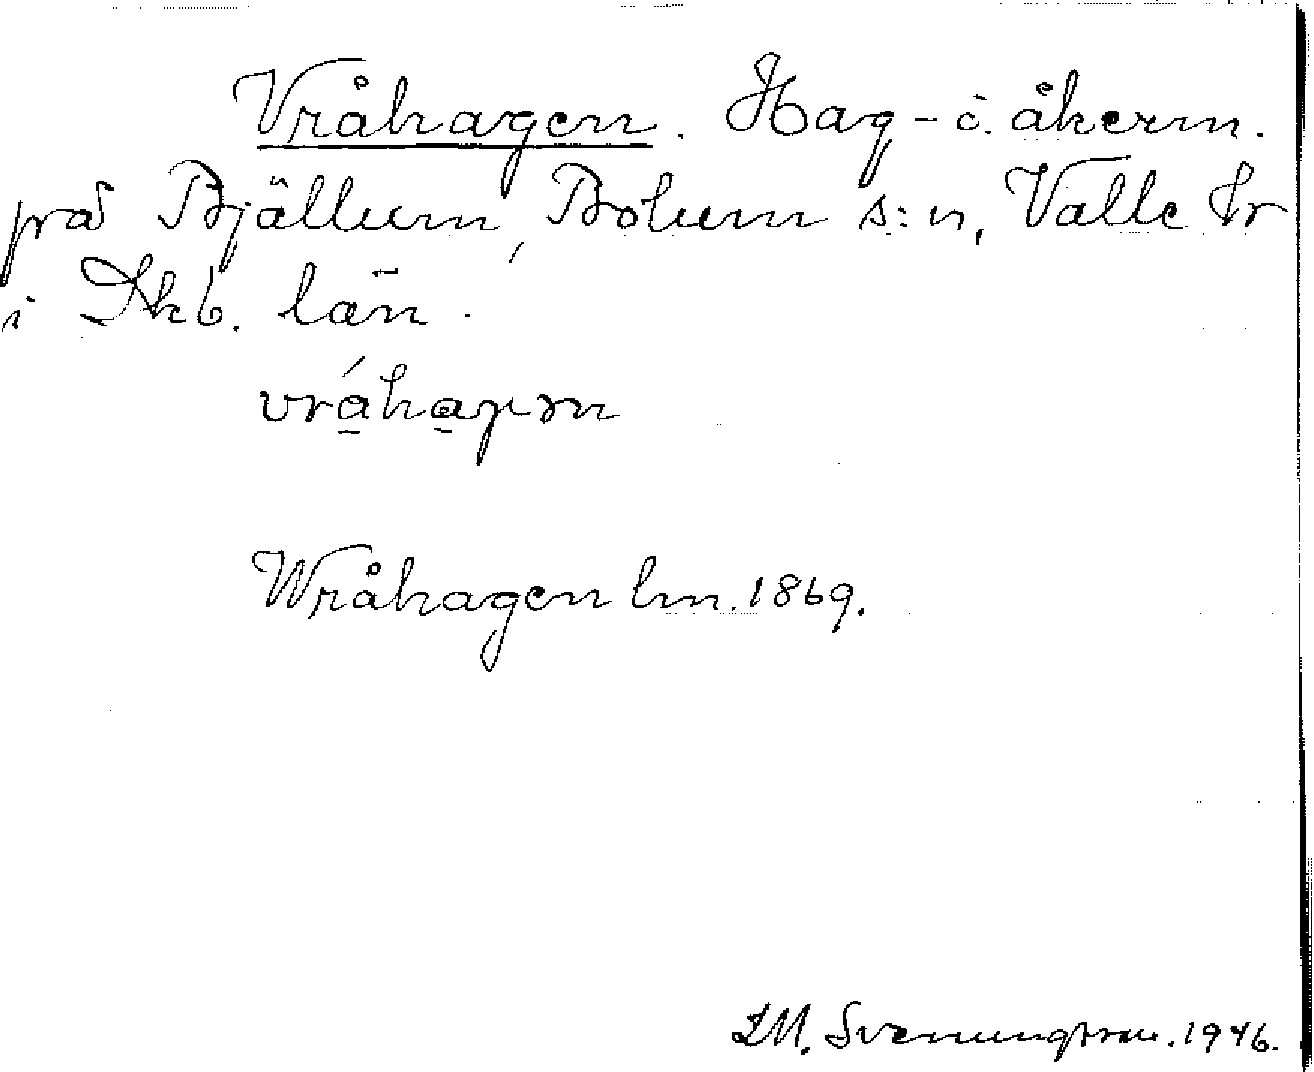 Vråhagen. Hag- o. åkerm.
på Bjällum, Bolum s:n, Valle hr
i Skb. län.
vráhagən
Wråhagen lm. 1869.
I.M. Svenungsson. 1946.